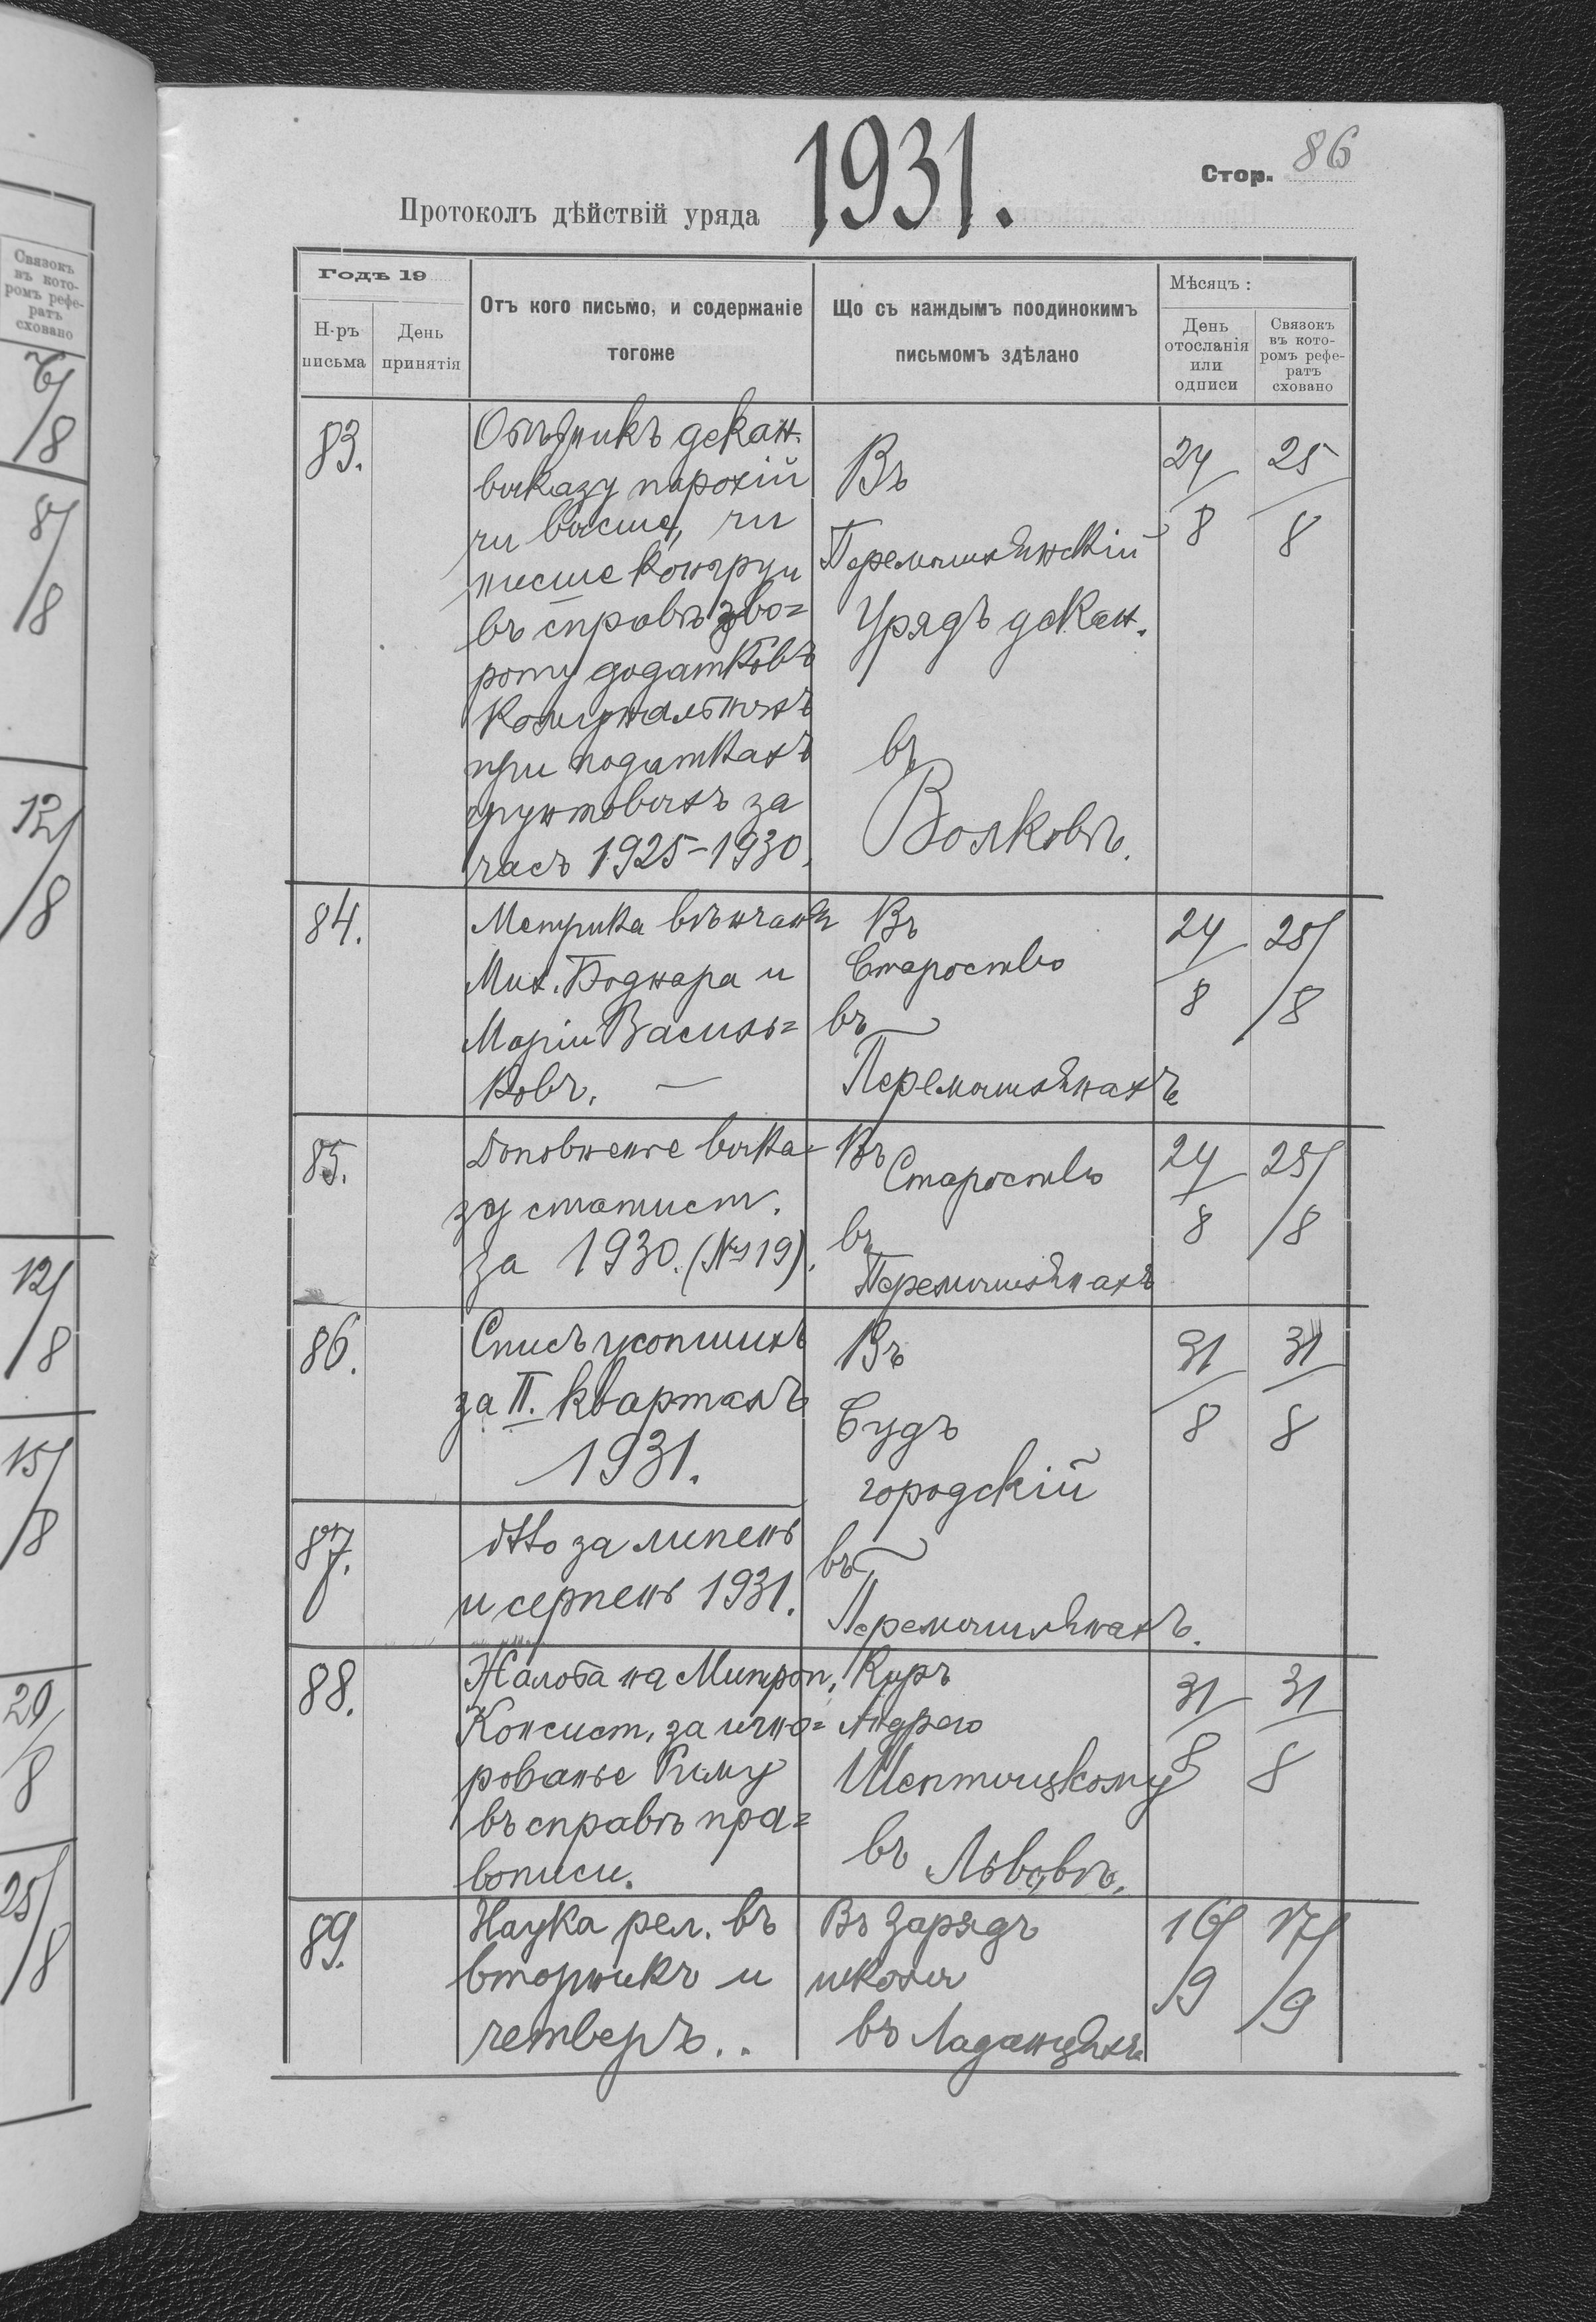 Связокъ
въ кото-
ромъ рефе-
ратъ
сховано
8
8/8
12/8
12/8
15/8
20/8
25/8
1931.
Стор. 86
Протоколъ дѣйствій уряда
Годъ 19
Н-ръ
письма
День
принятія
Отъ кого письмо, и содержаніе
тогоже
Що съ каждымъ поодинокимъ
письмомъ здѣлано
Мѣсяцъ :
День
отосланія
или
одписи
Связокъ
въ кото-
ромъ рефе-
ратъ
сховано
83.
Обѣжникъ декан.
выказу парохій
чи висше, чи
нисше конгруи
въ справѣ зво=
роту додатковъ
комунальныхъ
при податкахъ
грунтовыхъ за
часъ 1925-1930.
Въ
Перемышлянскій
Урядъ декан.
въ
Волковѣ.
24/8
25/8
84.
Метрика вѣнчанія
Мих. Боднара и
Маріи Василь=
ковъ. —
Въ
Староство
въ
Перемышлянахъ
24/8
25/8
85.
Доповненье выка=
зу статист.
за 1930. (№ 19).
Въ Староство
въ
Перемышлянахъ
24/8
25/8
86.
Списъ усопшихъ
за II. кварталъ
1931.
Въ
Судъ
городскій
31/8
31/8
87.
ditto за липень
и серпень 1931.
въ
Перемышлянахъ.
88.
Жалоба на Митроп.
Консист. за игно=
рованье Риму
въ справѣ пра=
вописи.
Киръ
Андрею
Шептицкому
въ Львовѣ.
31/8
31/8
89.
Наука рел. въ
вторникъ и
четверъ..
Въ Зарядъ
школы
въ Ладанцяхъ
16/9
17/9